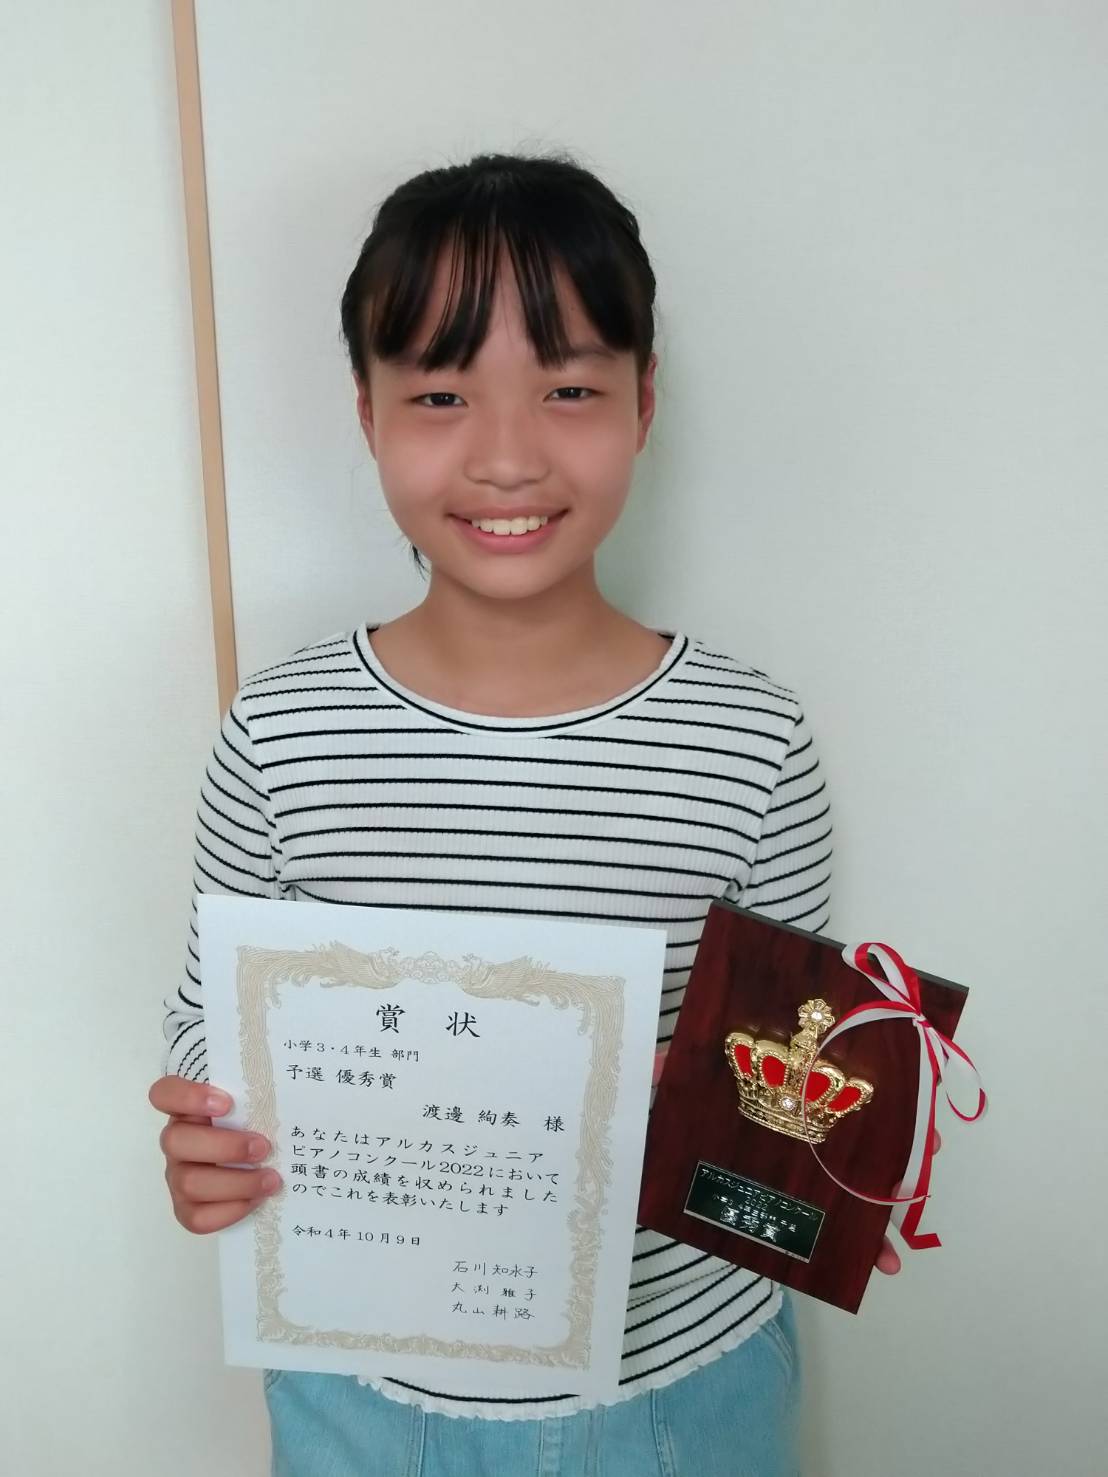 賞 状
小学3・4年生 部門
予選 優秀賞
渡邉 絢奏 様
あなたはアルカスジュニア
ピアノコンクール2022において
頭書の成績を収められました
のでこれを表彰いたします
令和4年10月9日
石川 知永子
大渕 雅子
丸山 耕路
アルカスジュニアピアノコンクール
2022
小学3・4年生部門 予選
優秀賞